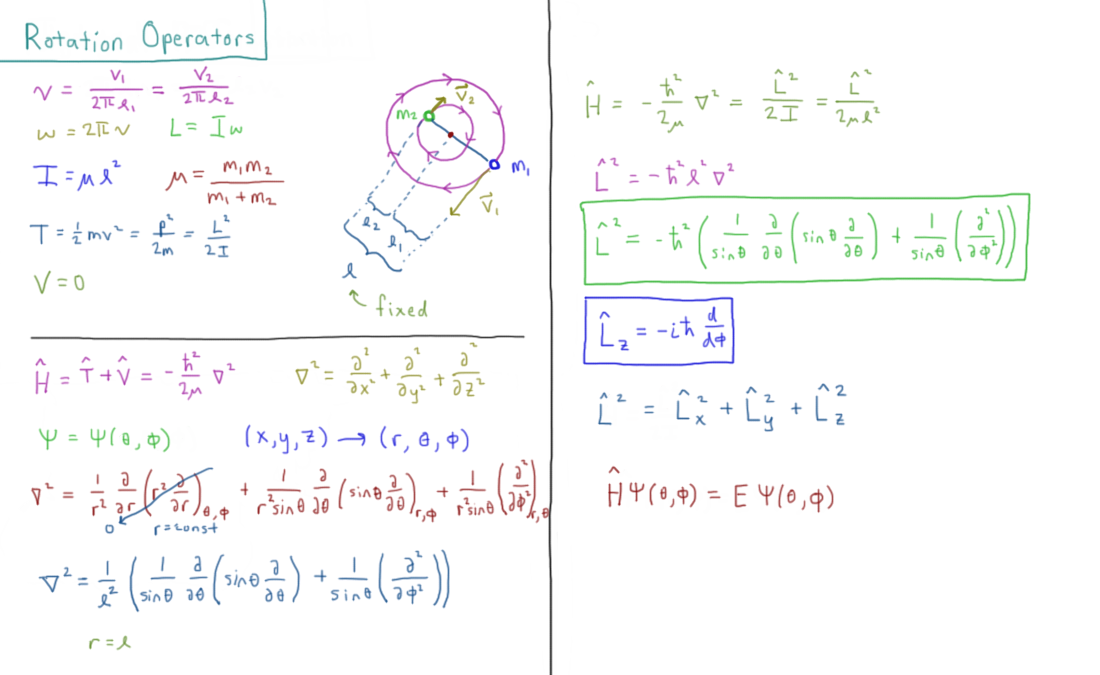 Rotation Operators
ν = V₁/(2π ℓ₁) = V₂/(2π ℓ₂)
ω = 2πν L = Iω
I = μℓ² μ = m₁m₂/(m₁ + m₂)
T = ½mv² = p²/2m = L²/2I
V = 0
m₂ V⃗₂
m₁
V⃗₁
ℓ₂
ℓ₁
ℓ
↖ fixed
Ĥ = T̂ + V̂ = -ħ²/2μ ∇² ∇² = ∂²/∂x² + ∂²/∂y² + ∂²/∂z²
Ψ = Ψ(θ, φ) (x,y,z) → (r, θ, φ)
∇² = 1/r² ∂/∂r (r² ∂/∂r)_θ,φ + 1/(r² sinθ) ∂/∂θ (sinθ ∂/∂θ)_r,φ + 1/(r² sinθ) (∂²/∂φ²)_r,θ
0 r = const
∇² = 1/ℓ² (1/sinθ ∂/∂θ (sinθ ∂/∂θ) + 1/sinθ (∂²/∂φ²))
r = ℓ
Ĥ = -ħ²/2μ ∇² = L̂²/2I = L̂²/2μℓ²
L̂² = -ħ² ℓ² ∇²
L̂² = -ħ² (1/sinθ ∂/∂θ (sinθ ∂/∂θ) + 1/sinθ (∂²/∂φ²))
L̂_z = -iħ d/dφ
L̂² = L̂_x² + L̂_y² + L̂_z²
Ĥ Ψ(θ,φ) = E Ψ(θ,φ)